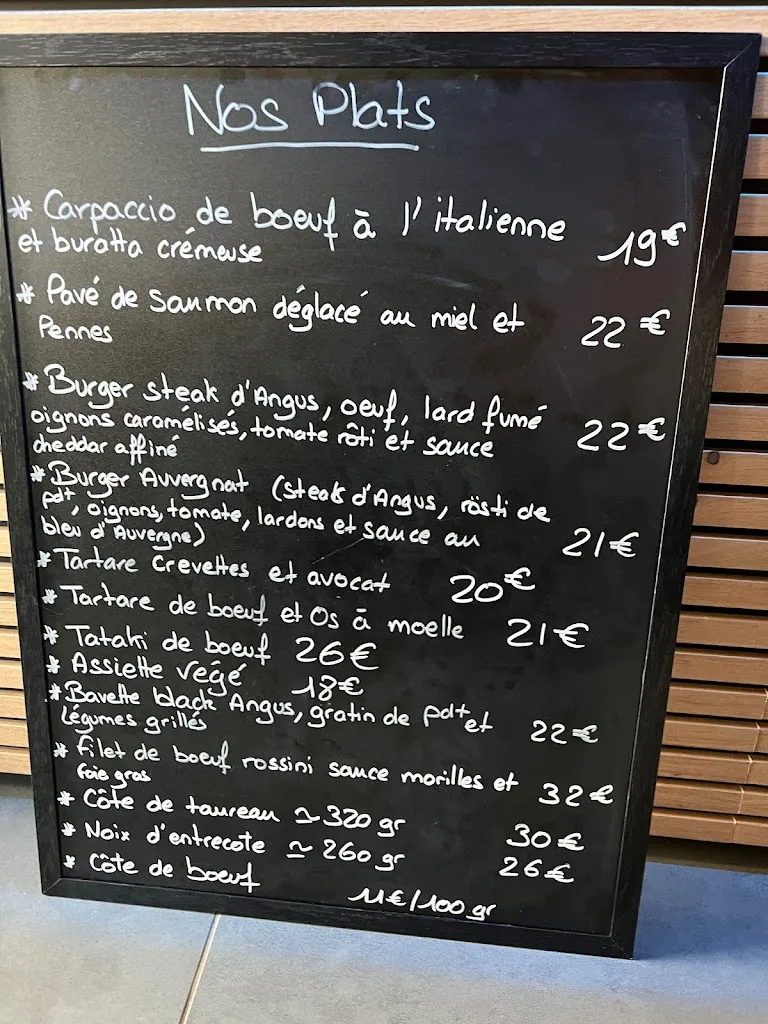 Nos Plats
* Carpaccio de boeuf à l'italienne
et buratta crémeuse 19€
* Pavé de saumon déglacé au miel et
Pennes 22€
* Burger steak d'Angus, oeuf, lard fumé
oignons caramélisés, tomate rôti et sauce 22€
cheddar affiné
* Burger Auvergnat (steak d'Angus, rösti de
pdt, oignons, tomate, lardons et sauce au
bleu d'Auvergne) 21€
* Tartare Crevettes et avocat 20€
* Tartare de boeuf et Os à moelle 21€
* Tataki de boeuf 26€
* Assiette végé 18€
* Bavette black Angus, gratin de pdt et
légumes grillés 22€
* Filet de boeuf rossini sauce morilles et
foie gras 32€
* Côte de taureau ≃ 320 gr 30€
* Noix d'entrecote ≃ 260 gr 26€
* Côte de boeuf 11€/100 gr